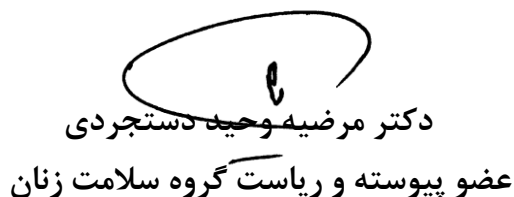 دکتر مرضیه وحید دستجردی
عضو پیوسته و ریاست گروه سلامت زنان